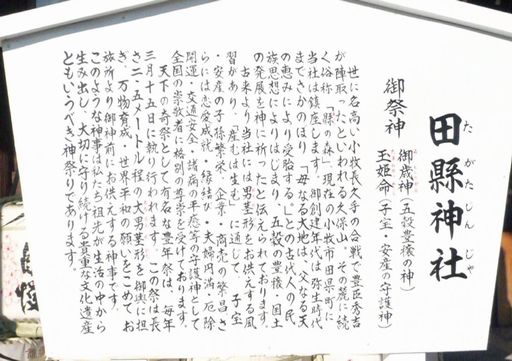 田縣神社
たがたじんじゃ
御祭神 御歳神(五穀豊穣の神)
玉姫命(子宝・安産の守護神)
世に名高い小牧長久手の合戦で豊臣秀吉
が陣取ったといわれる久保山、その麓に続
く俗称「縣の森」現在の小牧市田県町に
当社は鎮座します。御創建年代は弥生時代
までさかのぼり「母なる大地は、父なる天
の恵みにより受胎する」との古代人の民
族思想によりはじまり、五穀の豊穣・国土
の発展を神に祈ったと伝えられております。
古来より当社には男茎形をお供えする風
習があり、「産むは生む」に通じて、子宝
・安産の子孫繁栄、企業・商売の繁昌さ
らには恋愛成就・縁結び・夫婦円満・厄除
開運・交通安全・諸病の平癒等の守護神として
全国の崇敬者に格別の尊崇を受けております。
天下の奇祭として有名な豊年祭は、毎年
三月十五日に執り行われます。この祭は長
さ二・五メートル程の大男茎形を御輿に担
ぎ、万物育成・世界平和の願いをこめてお
旅所より御神前にお供えする神事です。
このような神事は私たち祖先が生活の中から
生み出し、大切に守り続ける貴重な文化遺産
ともいうべき神祭りであります。